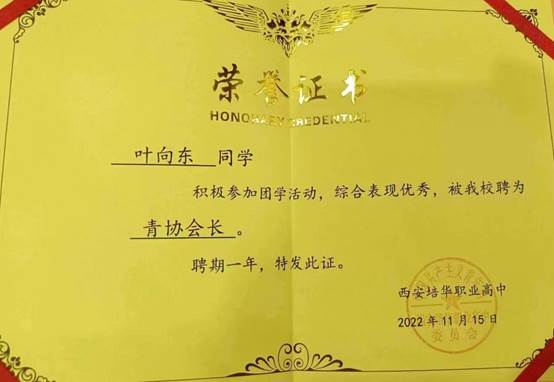 荣誉证书
HONORARY CREDENTIAL
叶向东 同学
积极参加团学活动，综合表现优秀，被我校聘为
青协会长。
聘期一年，特发此证。
西安培华职业高中
2022年11月15日
委员会